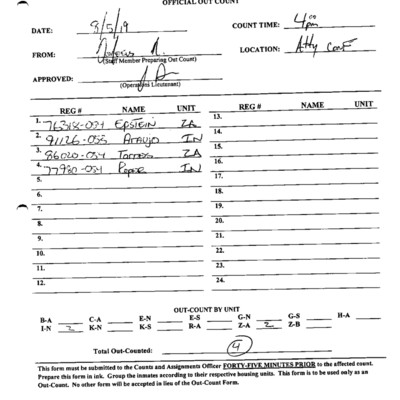 OFFICIAL OUT COUNT
DATE: 8/5/19 COUNT TIME: 4:00 pm
FROM: LOCATION: Atty Conf
(Staff Member Preparing Out Count)
APPROVED:
(Operations Lieutenant)
REG # NAME UNIT REG # NAME UNIT
1. 76318-054 EPSTEIN ZA 13.
2. 91126-053 ARAUJO IN 14.
3. 86020-054 Torres ZA 15.
4. 77980-054 IN 16.
5. 17.
6. 18.
7. 19.
8. 20.
9. 21.
10. 22.
11. 23.
12. 24.
OUT-COUNT BY UNIT
B-A C-A E-N E-S G-N G-S H-A
I-N 2 K-N K-S R-A Z-A 2 Z-B
Total Out-Counted: 4
This form must be submitted to the Counts and Assignments Officer FORTY-FIVE MINUTES PRIOR to the affected count.
Prepare this form in ink. Group the inmates according to their respective housing units. This form is to be used only as an
Out-Count. No other form will be accepted in lieu of the Out-Count Form.